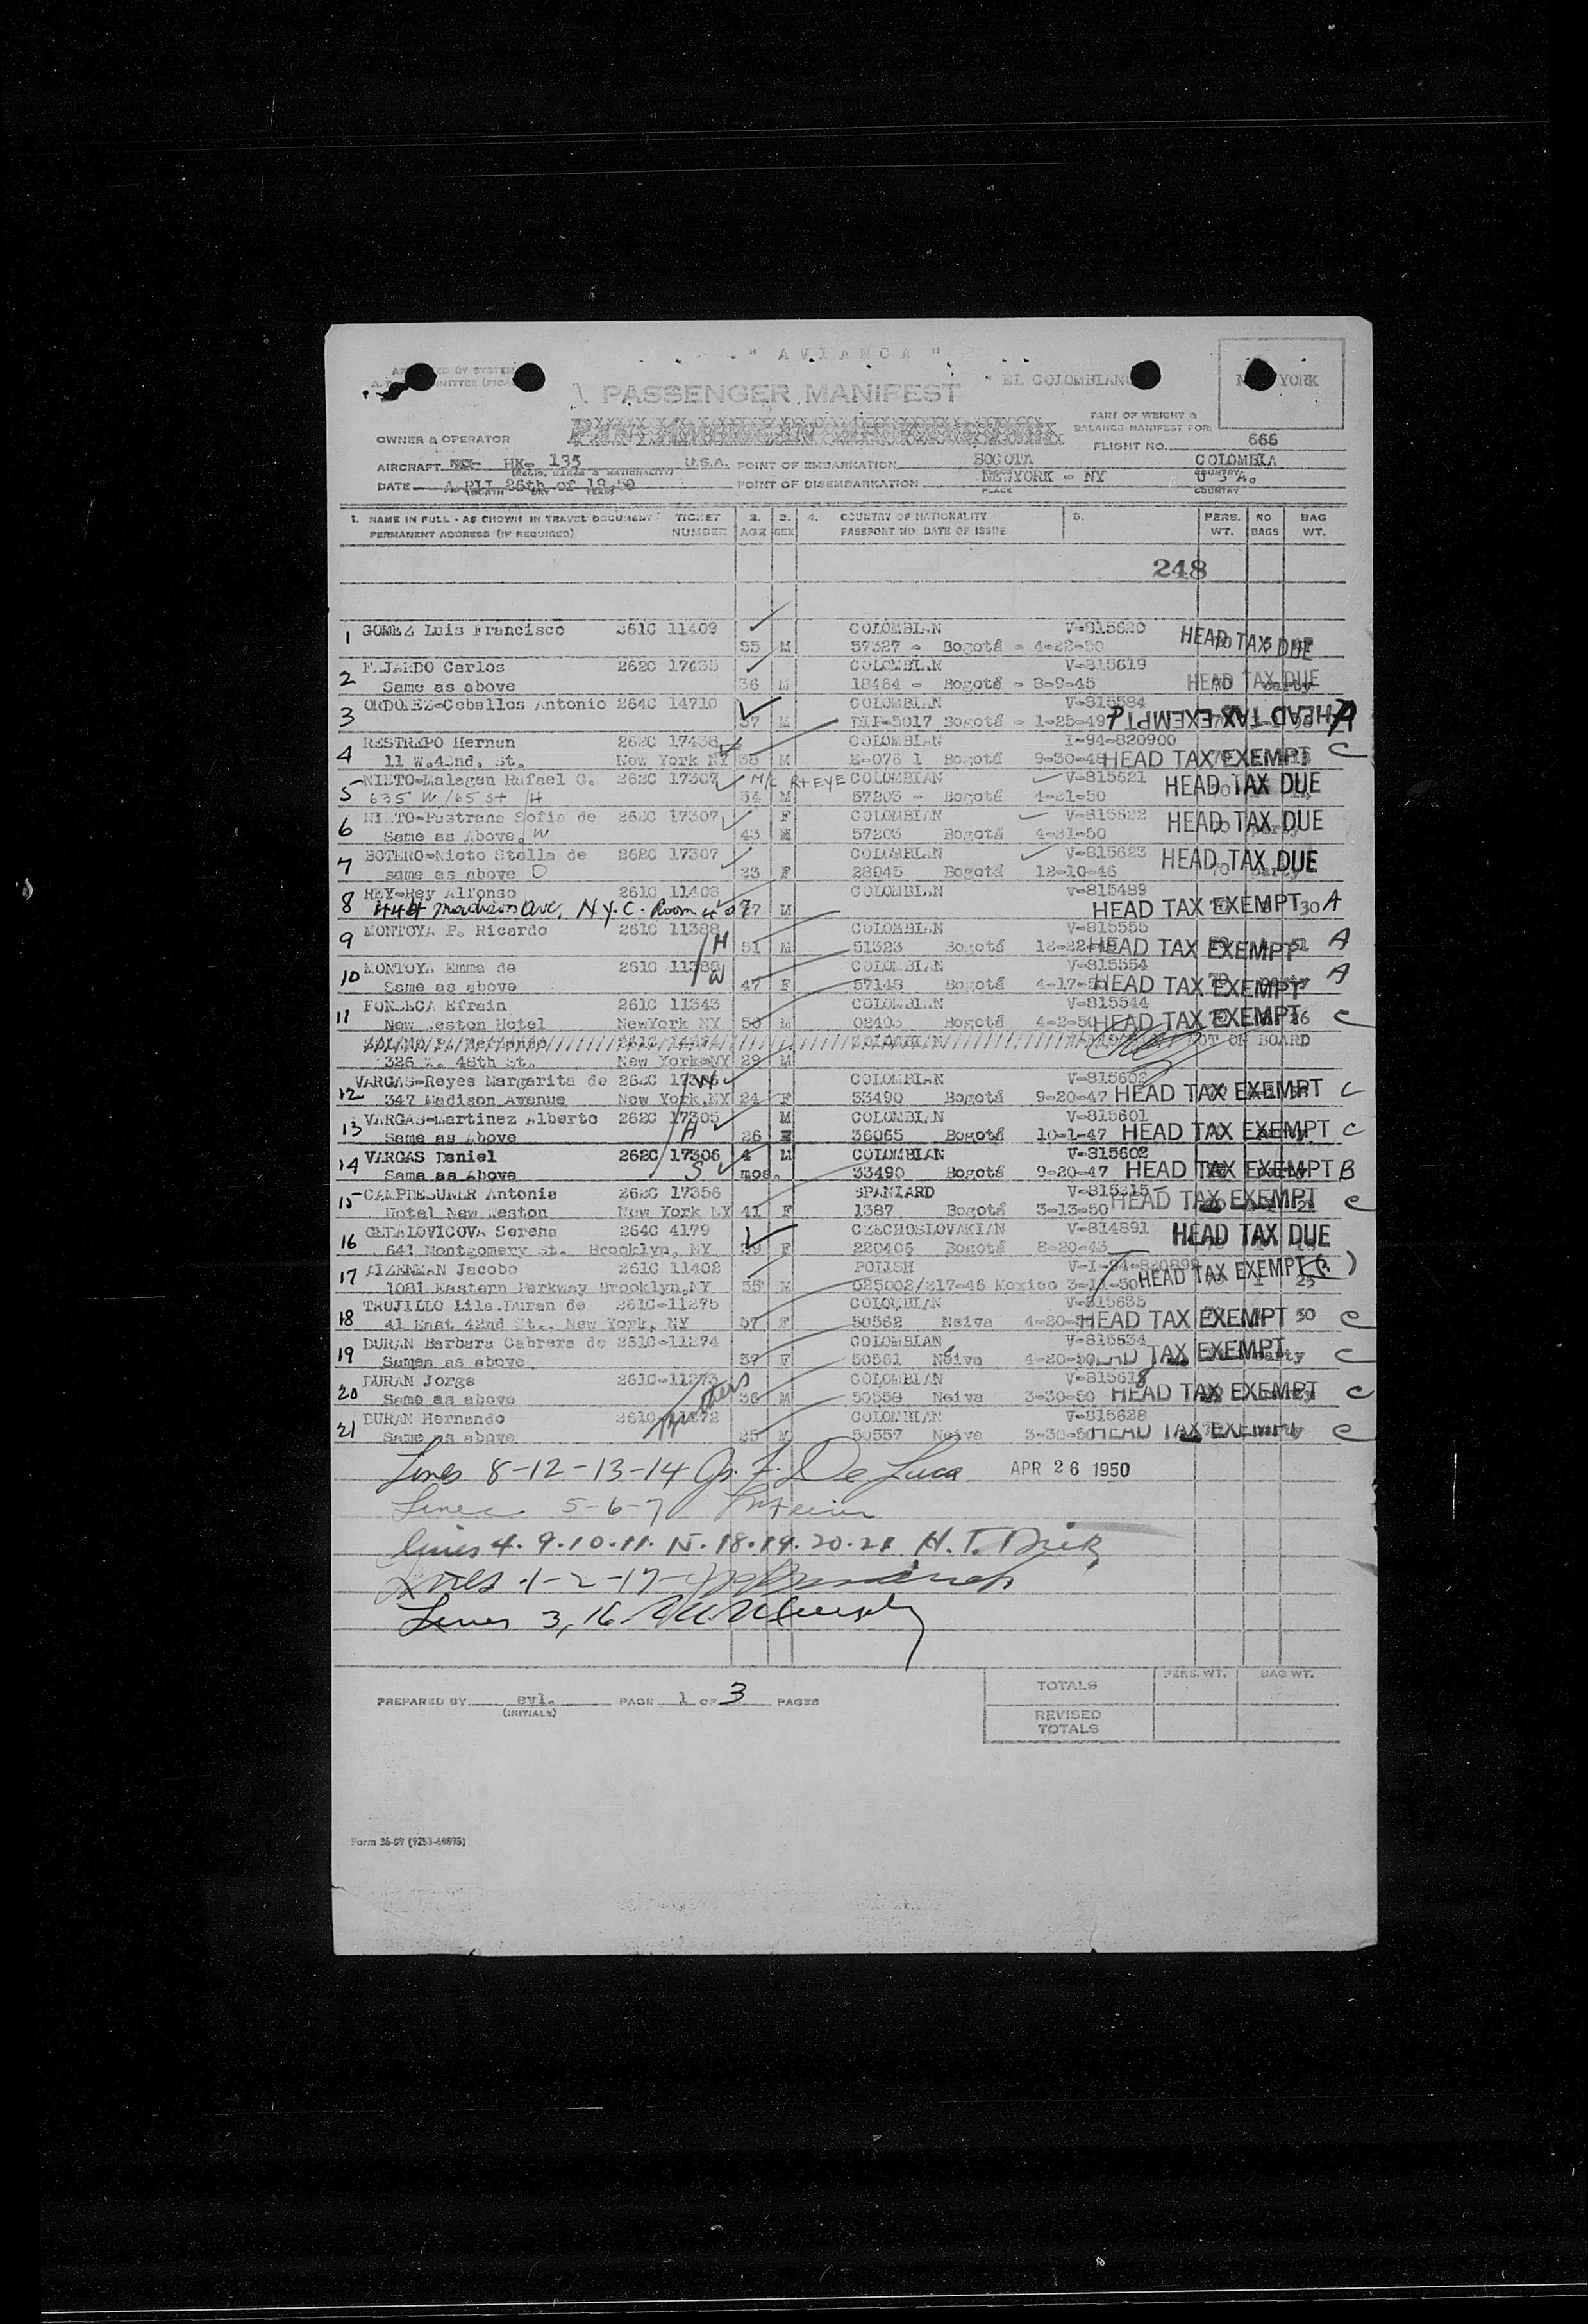 " AVIANCA "
PASSENGER MANIFEST " EL COLOMBIANO YORK
PART OF WEIGHT &
BALANCE MANIFEST FOR:
OWNER & OPERATOR
FLIGHT NO. 666
AIRCRAFT HK- 135 U.S.A. POINT OF EMBARKATION BOGOTA COLOMBIA
DATE APRIL 26th of 1950 POINT OF DISEMBARKATION NEWYORK - NY U S A.
PLACE COUNTRY
1. NAME IN FULL - AS SHOWN IN TRAVEL DOCUMENT TICKET 2. 3. 4. COUNTRY OF NATIONALITY 5. PERS. NO BAG
PERMANENT ADDRESS (IF REQUIRED) NUMBER AGE SEX PASSPORT NO DATE OF ISSUE WT. BAGS WT.
248
1 GOMEZ Luis Francisco 261C 11409 COLOMBIAN V-815620
55 M 57327 - Bogotá - 4-22-50 HEAD TAX DUE
2 FAJARDO Carlos 262C 17435 COLOMBIAN V-815619
Same as above 36 M 18464 - Bogotá - 8-9-45 HEAD TAX DUE
3 ORDOÑEZ-Ceballos Antonio 264C 14710 COLOMBIAN V-815584
37 M DIP-5017 Bogotá - 1-25-49 HEAD TAX EXEMPT A
4 RESTREPO Hernan 262C 17438 COLOMBIAN I-94-820900
11 W.42nd. St. New York NY 35 M E-076 1 Bogotá 9-30-48 HEAD TAX EXEMPT C
5 NIETO- Rafael G. 262C 17307 COLOMBIAN V-815621
635 W 165 St H 54 M 57203 - Bogotá 4-21-50 HEAD TAX DUE
6 NIETO-Pastrana Sofia de 262C 17307 F COLOMBIAN V-815622
Same as Above. W 43 M 57203 Bogotá 4-21-50 HEAD TAX DUE
7 BOTERO-Nieto Stella de 262C 17307 COLOMBIAN V-815623
same as above D 23 F 28045 Bogotá 12-10-46 HEAD TAX DUE
8 REY-Rey Alfonso 261C 11408 COLOMBIAN V-815489
Madison Ave, N.Y.C. Room 27 M HEAD TAX EXEMPT 30 A
9 MONTOYA P. Ricardo 261C 11388 H COLOMBIAN V-815555
51 M 51323 Bogotá 12-22- HEAD TAX EXEMPT A
10 MONTOYA Emma de 261C 11389 W COLOMBIAN V-815554
Same as above 47 F 57148 Bogotá 4-17-50 HEAD TAX EXEMPT A
11 FONSECA Efrain 261C 11343 COLOMBIAN V-815544
New Weston Hotel NewYork NY 50 M 02403 Bogotá 4-2-50 HEAD TAX EXEMPT C
NOT ON BOARD
326 W. 48th St. New York-NY 29 M
12 VARGAS-Reyes Margarita de 262C W COLOMBIAN V-815602
347 Madison Avenue New York,NY 24 F 33490 Bogotá 9-20-47 HEAD TAX EXEMPT C
13 VARGAS-Martinez Alberto 262C 17305 M COLOMBIAN V-815601
Same as Above H 26 36065 Bogotá 10-1-47 HEAD TAX EXEMPT C
14 VARGAS Daniel 262C 17306 4 M COLOMBIAN V-815602
Same as Above S mos. 33490 Bogotá 9-20-47 HEAD TAX EXEMPT B
15 Antonia 262C 17356 SPANIARD V-815215
Hotel New Weston New York NY 41 F 1387 Bogotá 3-13-50 HEAD TAX EXEMPT C
16 GETALOVICOVA Serena 264C 4179 CZECHOSLOVAKIAN V-814891
641 Montgomery St. Brooklyn, NY 59 F 220406 Bogotá 8-20-43 HEAD TAX DUE
17 AIZENMAN Jacobo 261C 11402 POLISH V-I-94-820899
1081 Eastern Parkway Brooklyn,NY 55 M 025002/217-46 Mexico 3-11-50 HEAD TAX EXEMPT 25
18 TRUJILLO Lila.Duran de 261C-11275 COLOMBIAN V-815635
41 East 42nd St., New York, NY 57 F 50562 Neiva 4-20-50 HEAD TAX EXEMPT 30 C
19 DURAN Barbara Cabrera de 261C-11274 COLOMBIAN V-815634
Samea as above 57 F 50561 Neiva 4-20-50 HEAD TAX EXEMPT C
20 DURAN Jorge 261C-11273 COLOMBIAN V-815618
Same as above Brothers 36 M 50558 Neiva 3-30-50 HEAD TAX EXEMPT C
21 DURAN Hernando 261C 11272 COLOMBIAN V-815628
Same as above 25 M 50557 Neiva 3-30-50 HEAD TAX EXEMPT C
Lines 8-12-13-14 De Luca APR 26 1950
Lines 5-6-7
lines 4.9.10.11.15.18.19.20.21 H.T.
Lines 1-2-17-
Lines 3, 16
PERS. WT. BAG WT.
TOTALS
PREPARED BY syl. PAGE 1 OF 3 PAGES
(INITIALS)
REVISED
TOTALS